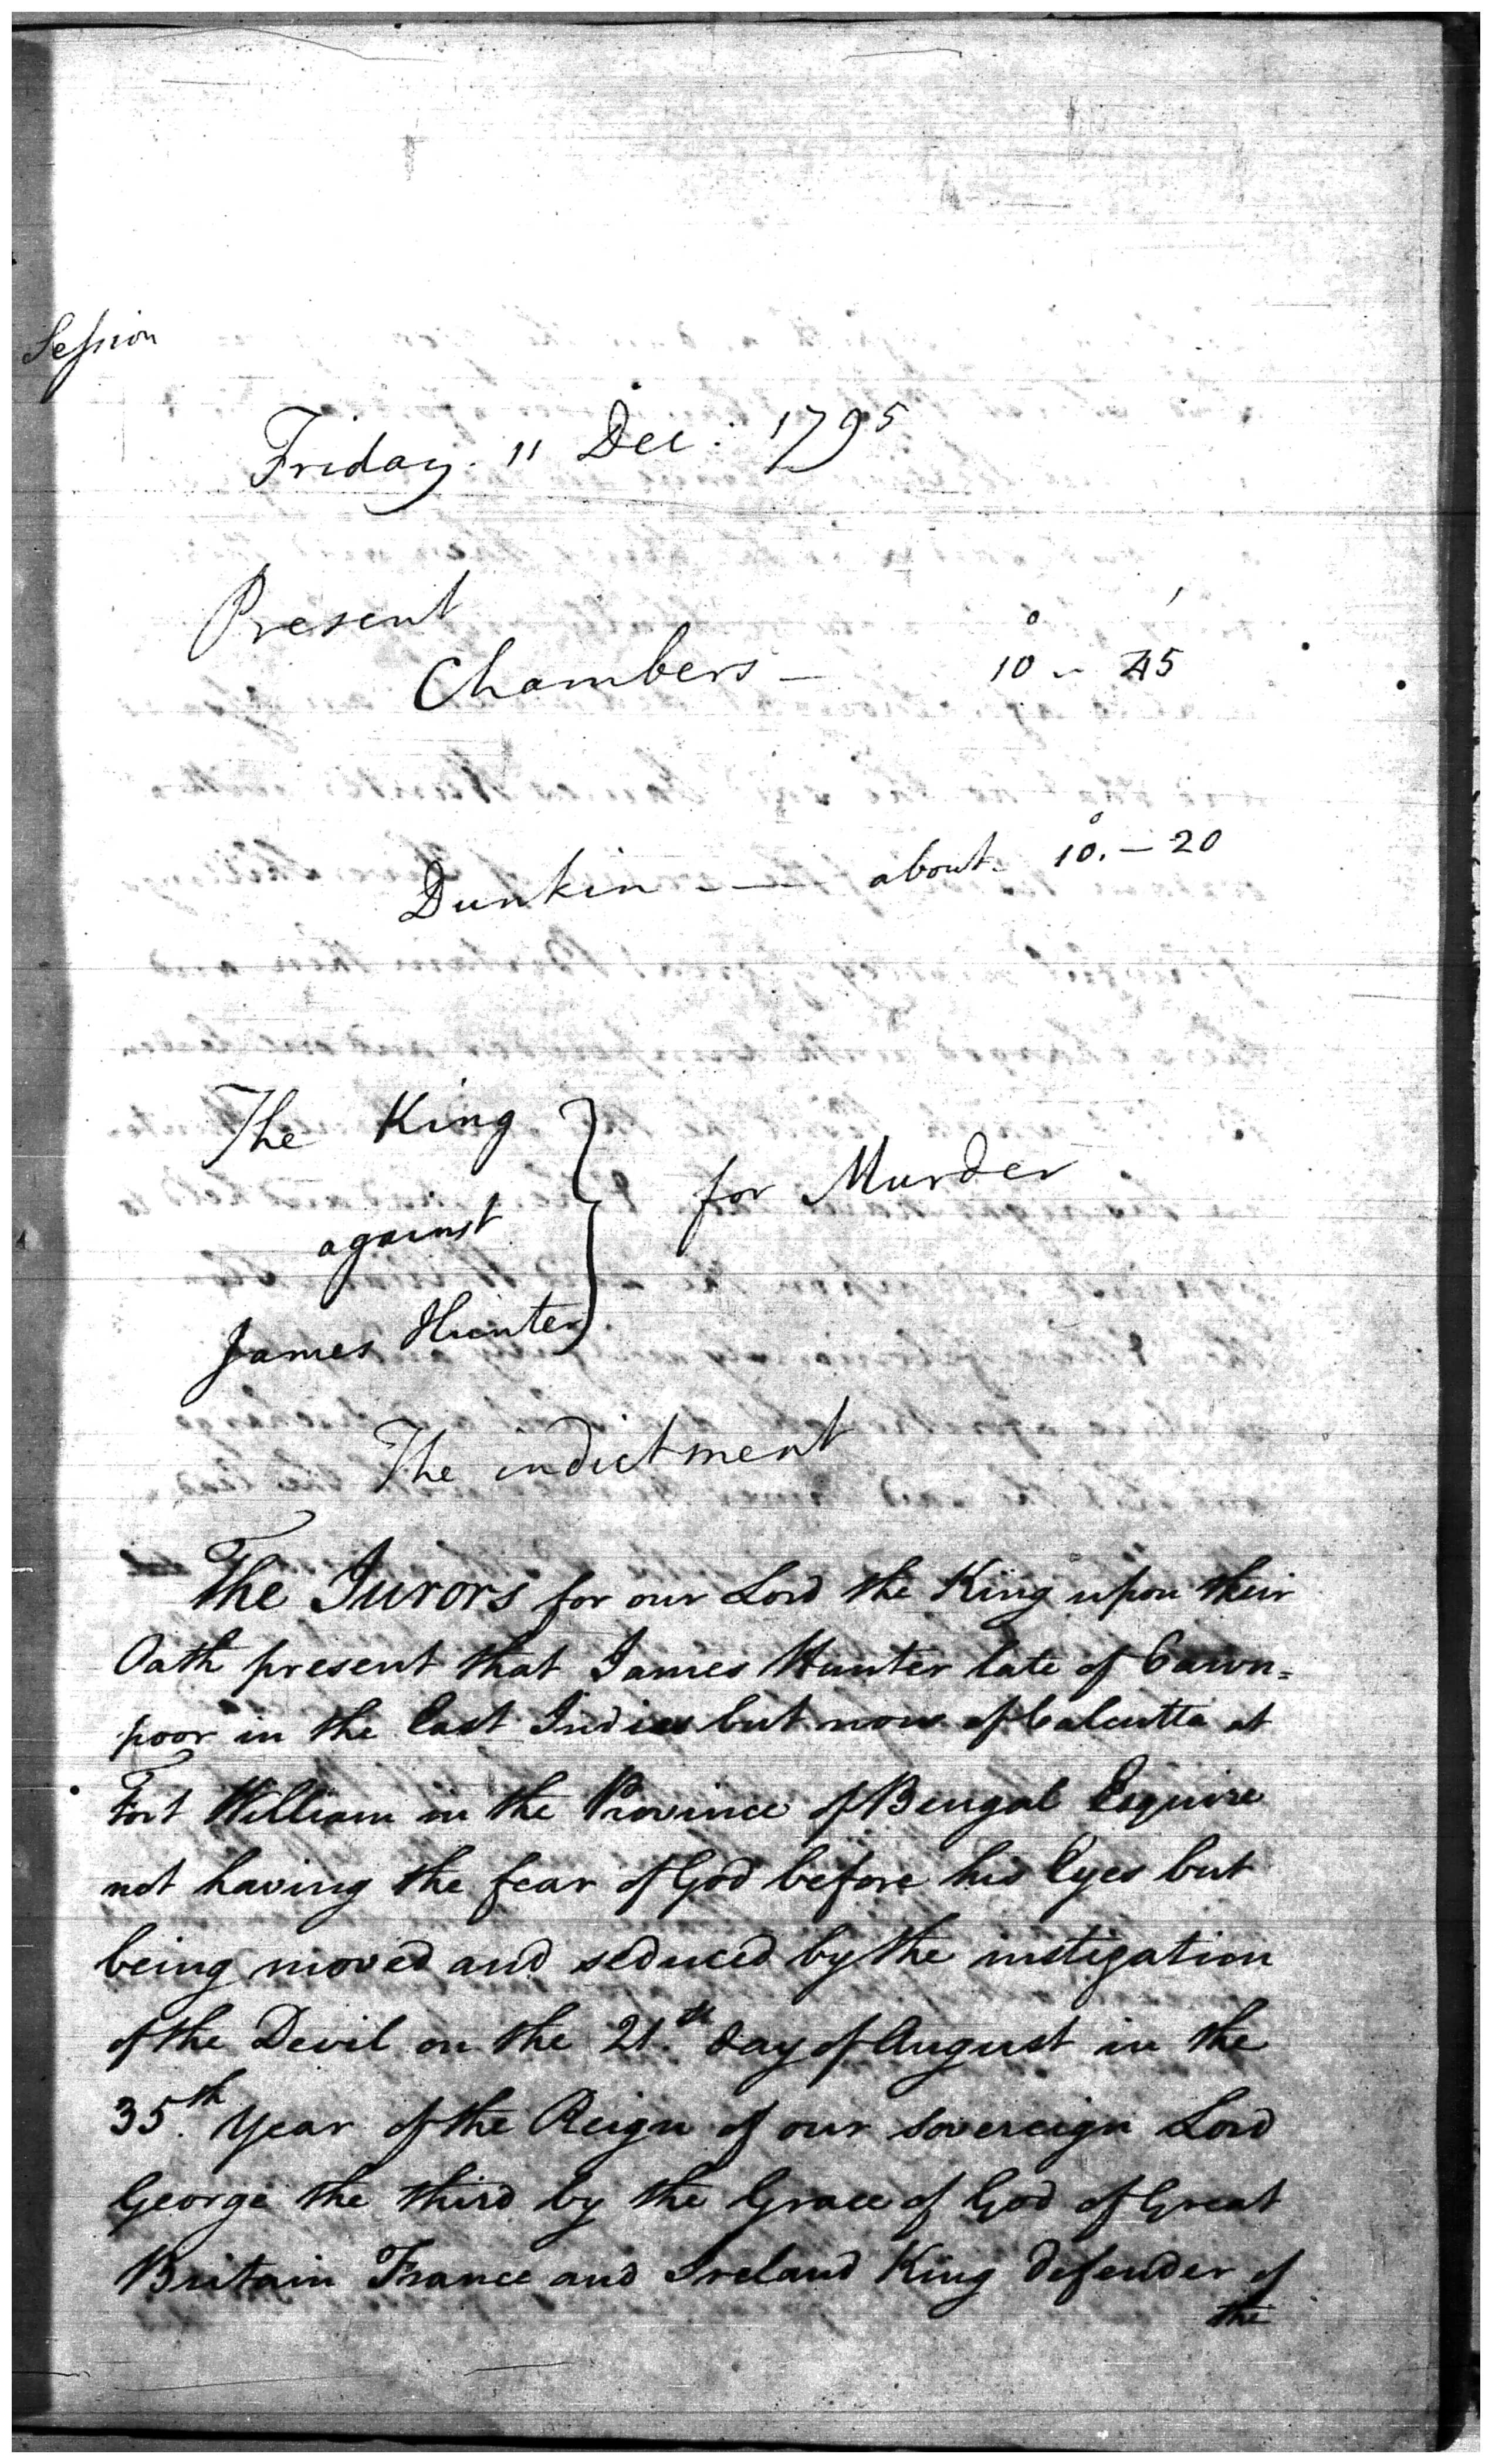 Session
Friday. 11 Dec: 1795
Present
Chambers — 10 - 45
Dunkin — — about 10. — 20
The King
against
James Hunter
for Murder
The indictment
The Jurors for our Lord the King upon their
Oath present that James Hunter late of Cawn=
poor in the East Indies but now of Calcutta at
Fort William in the Province of Bengal Esquire
not having the fear of God before his Eyes but
being moved and seduced by the instigation
of the Devil on the 21.st day of August in the
35.th Year of the Reign of our Sovereign Lord
George the third by the Grace of God of Great
Britain France and Ireland King defender of
the